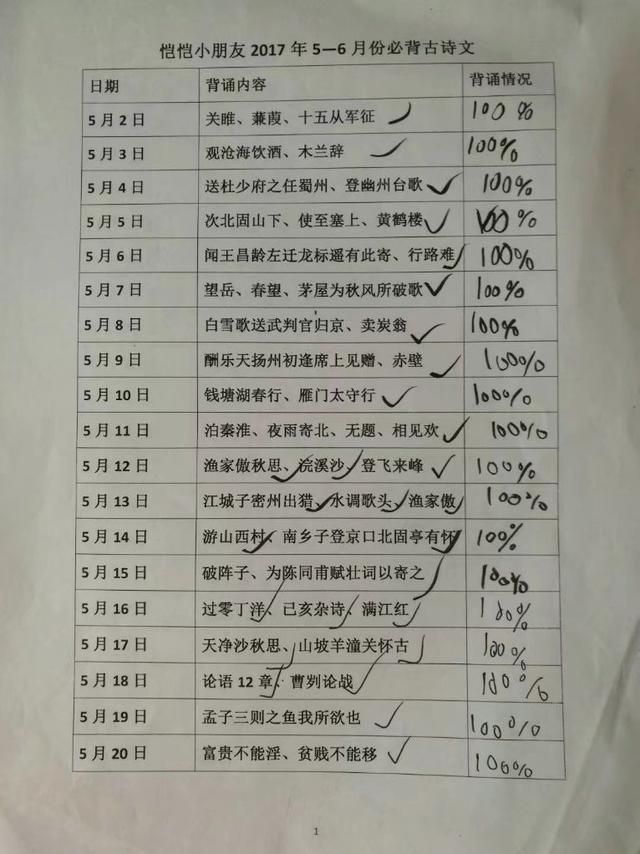 恺恺小朋友 2017 年 5—6 月份必背古诗文
日期 背诵内容 背诵情况
5 月 2 日 关雎、蒹葭、十五从军征 100%
5 月 3 日 观沧海饮酒、木兰辞 100%
5 月 4 日 送杜少府之任蜀州、登幽州台歌 100%
5 月 5 日 次北固山下、使至塞上、黄鹤楼 100%
5 月 6 日 闻王昌龄左迁龙标遥有此寄、行路难 100%
5 月 7 日 望岳、春望、茅屋为秋风所破歌 100%
5 月 8 日 白雪歌送武判官归京、卖炭翁 100%
5 月 9 日 酬乐天扬州初逢席上见赠、赤壁 100%
5 月 10 日 钱塘湖春行、雁门太守行 100%
5 月 11 日 泊秦淮、夜雨寄北、无题、相见欢 100%
5 月 12 日 渔家傲秋思、浣溪沙、登飞来峰 100%
5 月 13 日 江城子密州出猎、水调歌头、渔家傲 100%
5 月 14 日 游山西村、南乡子登京口北固亭有怀 100%
5 月 15 日 破阵子、为陈同甫赋壮词以寄之 100%
5 月 16 日 过零丁洋、己亥杂诗、满江红 100%
5 月 17 日 天净沙秋思、山坡羊潼关怀古 100%
5 月 18 日 论语 12 章、曹刿论战 100%
5 月 19 日 孟子三则之鱼我所欲也 100%
5 月 20 日 富贵不能淫、贫贱不能移 100%
1